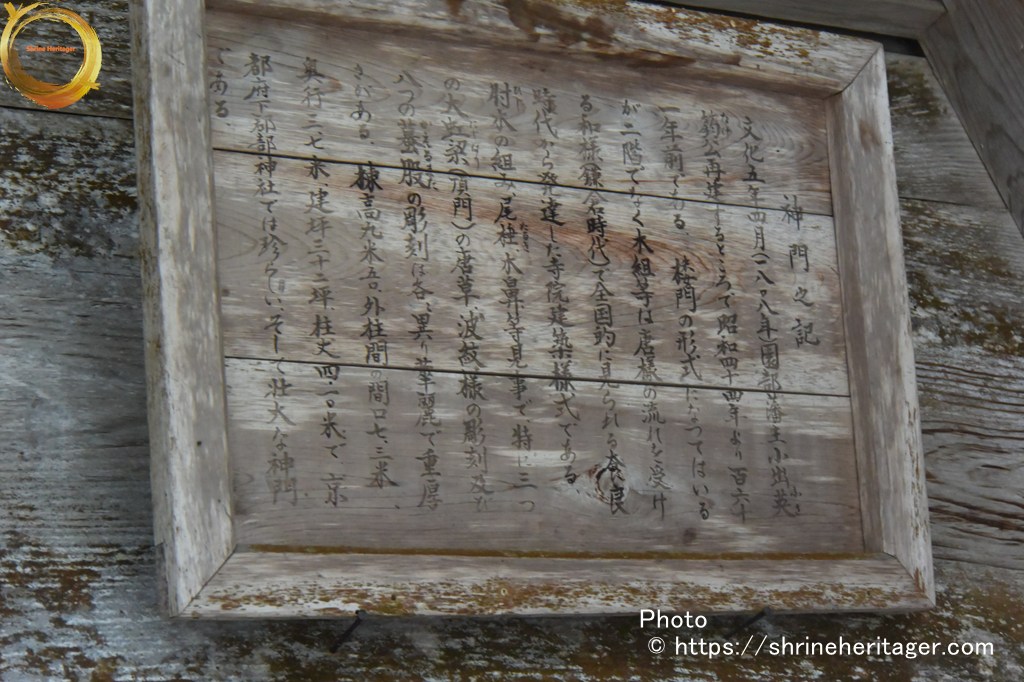 神門之記
文化五年四月(一八〇八年)園部藩主小出英
筠公再建するところで昭和四十四年より百六十
一年前である 楼門の形式になつてはいる
が二階でなく木組等は唐様の流れを受け
る和様鎌倉時代で全国的に見られる奈良
時代から発達した寺院建築様式である
肘木の組み尾柱木鼻等見事で特に三つ
の大虹梁(頂門)の唐草、波紋様の彫刻及び
八つの蟇股の彫刻は各、異り華麗で重厚
さがある。棟高九米五〇、外柱間の間口七、三米、
奥行二七米、建坪三十二坪、柱丈四、一〇米で、京
都府下郡部神社では珍らしい、そして壮大な神門
である
Shrine Heritager
Photo
© https://shrineheritager.com